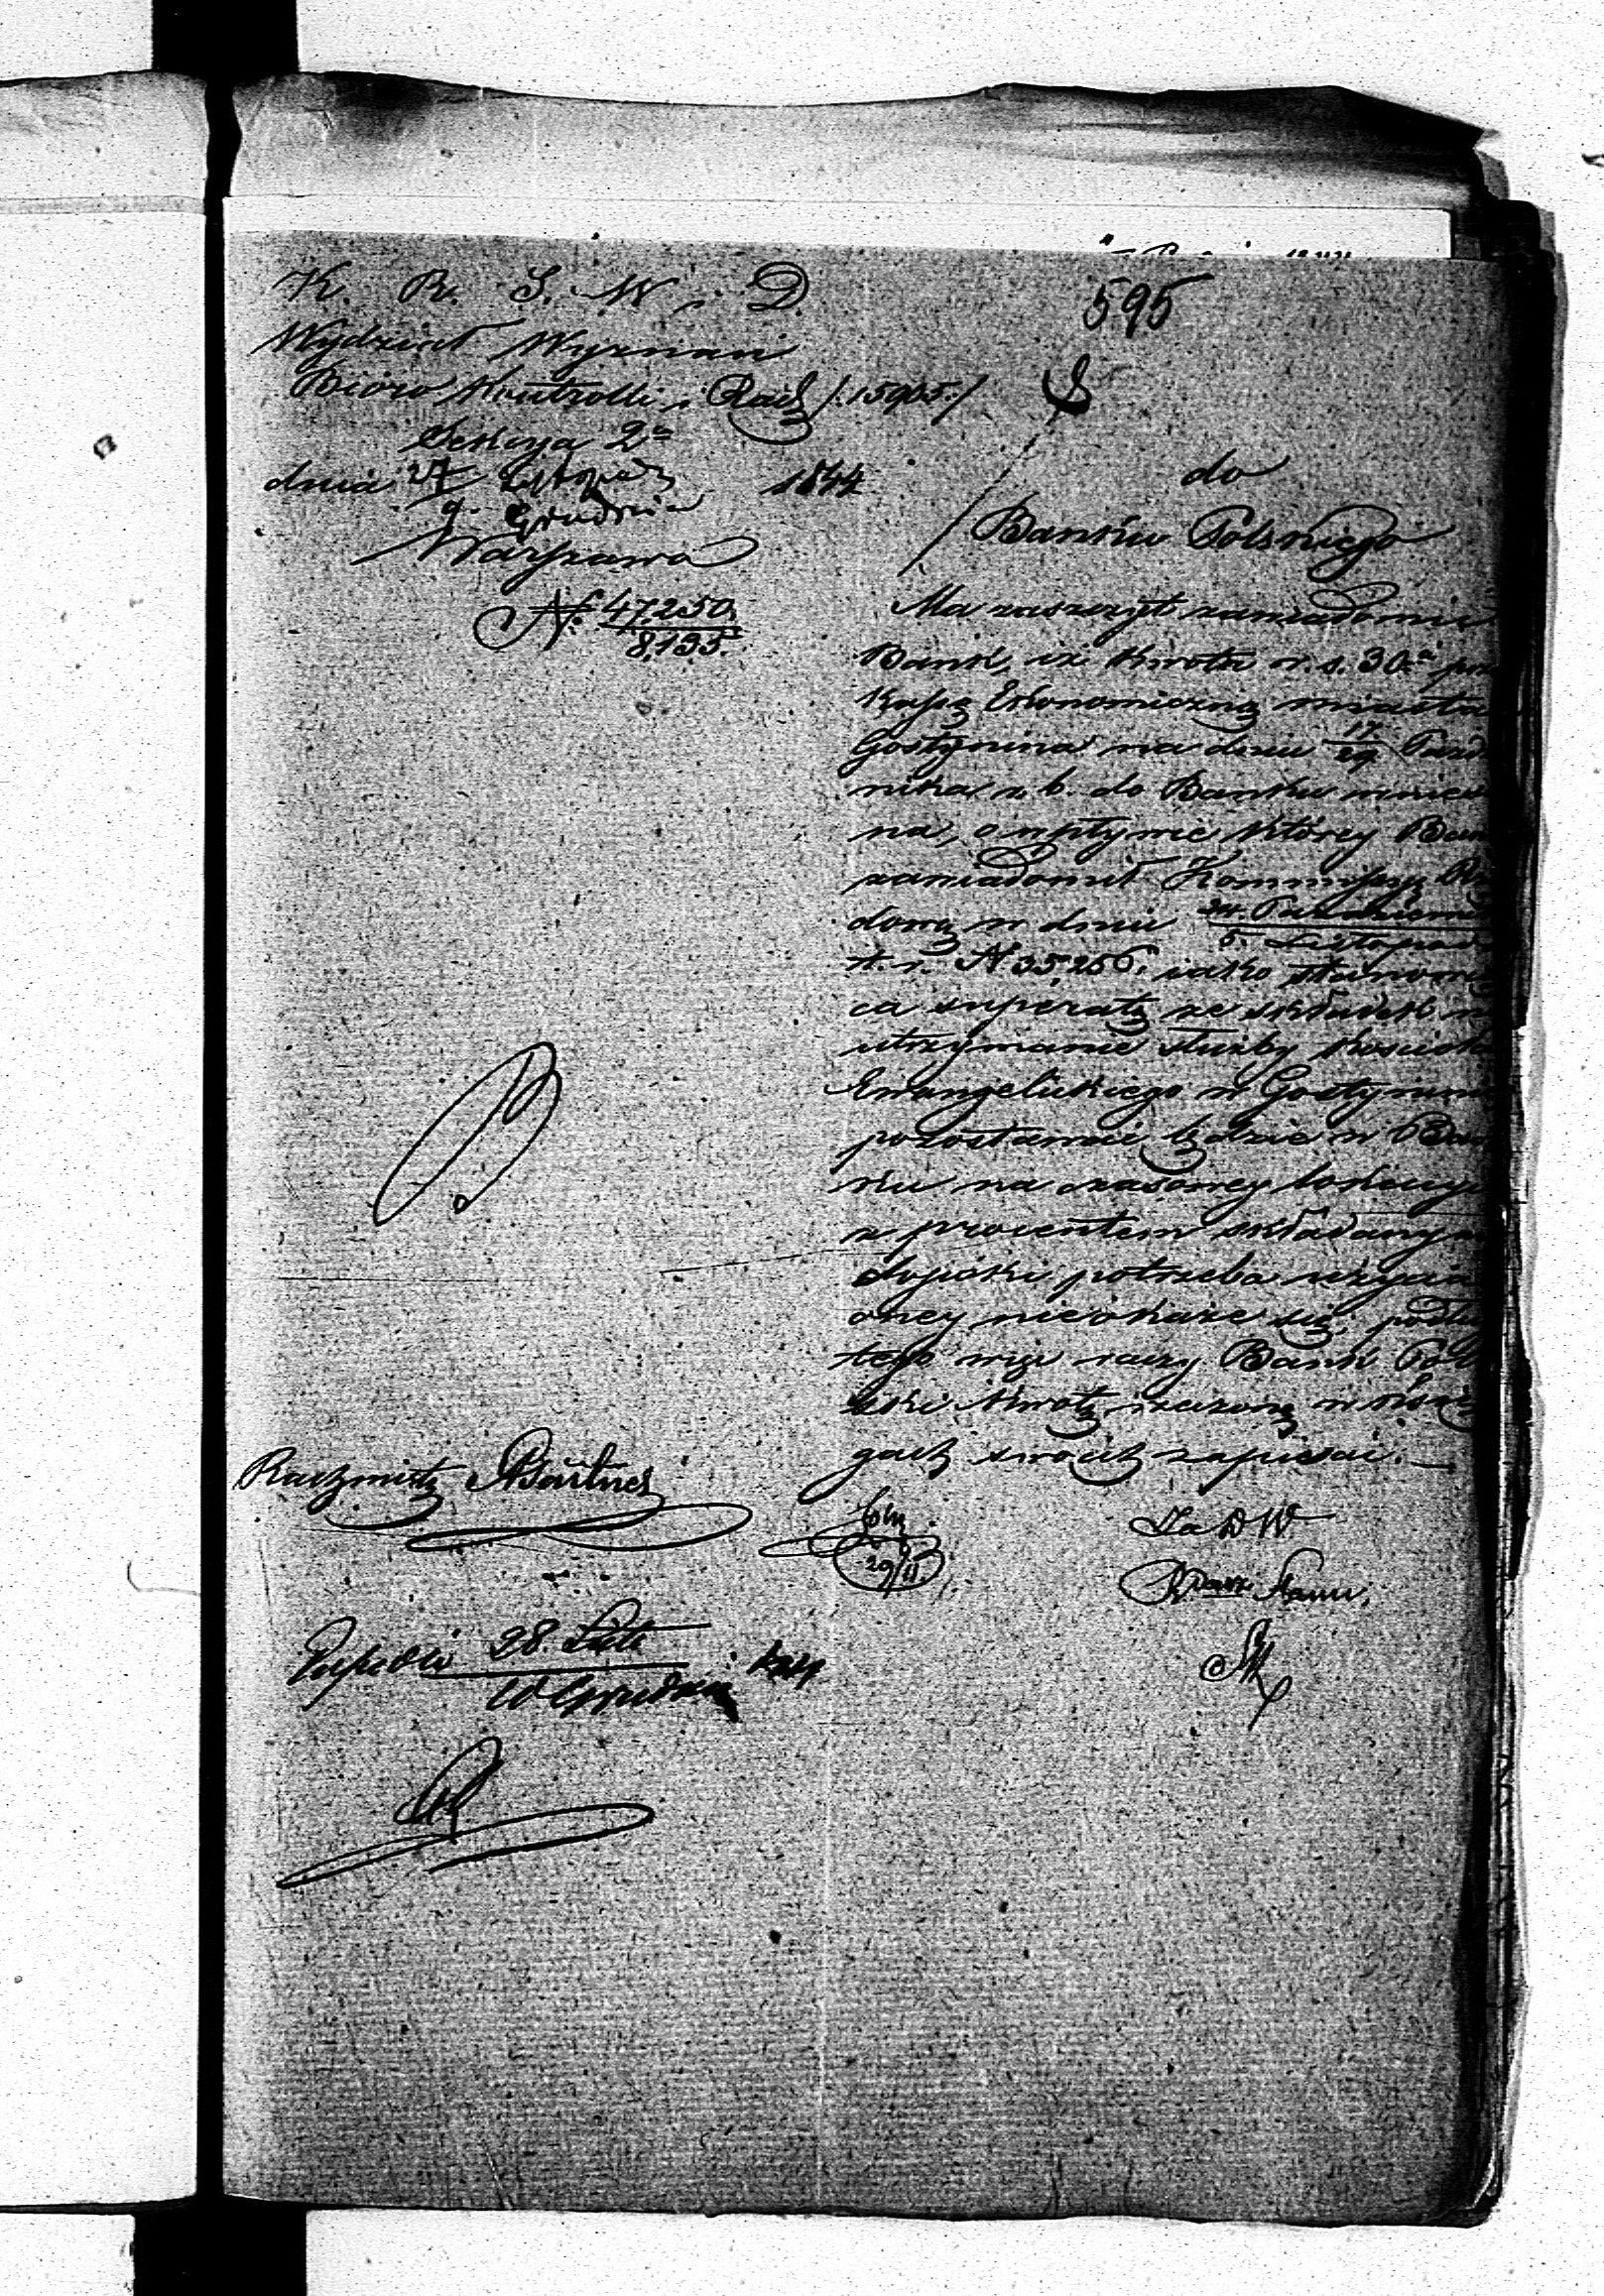 595
K. R. S. W. i D.
Wydział Wyznań
Bióro Kontrolli i Rach /:15905:/
Sekcya 2a
dnia 27 Listopada
9. Grudnia 1844
Warszawa
N. 47,250
8,195.
do
Banku Polskiego
Ma zaszczyt zawiadomić
Bank, iż kwota r. s. 30. prz
Kassę Ekonomiczną miasta
Gostynina na dniu 17/29 Paźd
nika r. b. do Banku wniesio
na, o wpływie którey Bank
zawiadomił Kommissyę Rzą
dową w dniu 24. Październik
5. Listopada
t. r. N 35256. iako stanowią
ca superatę ze składek na
utrzymanie służby Kościoła
Ewangelickiego w Gostyninie
pozostawać będzie w Ban
ku na czasowey lokacyi
z procentem składanym
dopóki potrzeba użycia
oney nieokaże się, podług
tego więc raczy Bank Pol
ski kwotę rzeczoną w Księ
gach swoich zapisać.
Rachmistrz
29/11
Za D W
28
10 Grudnia